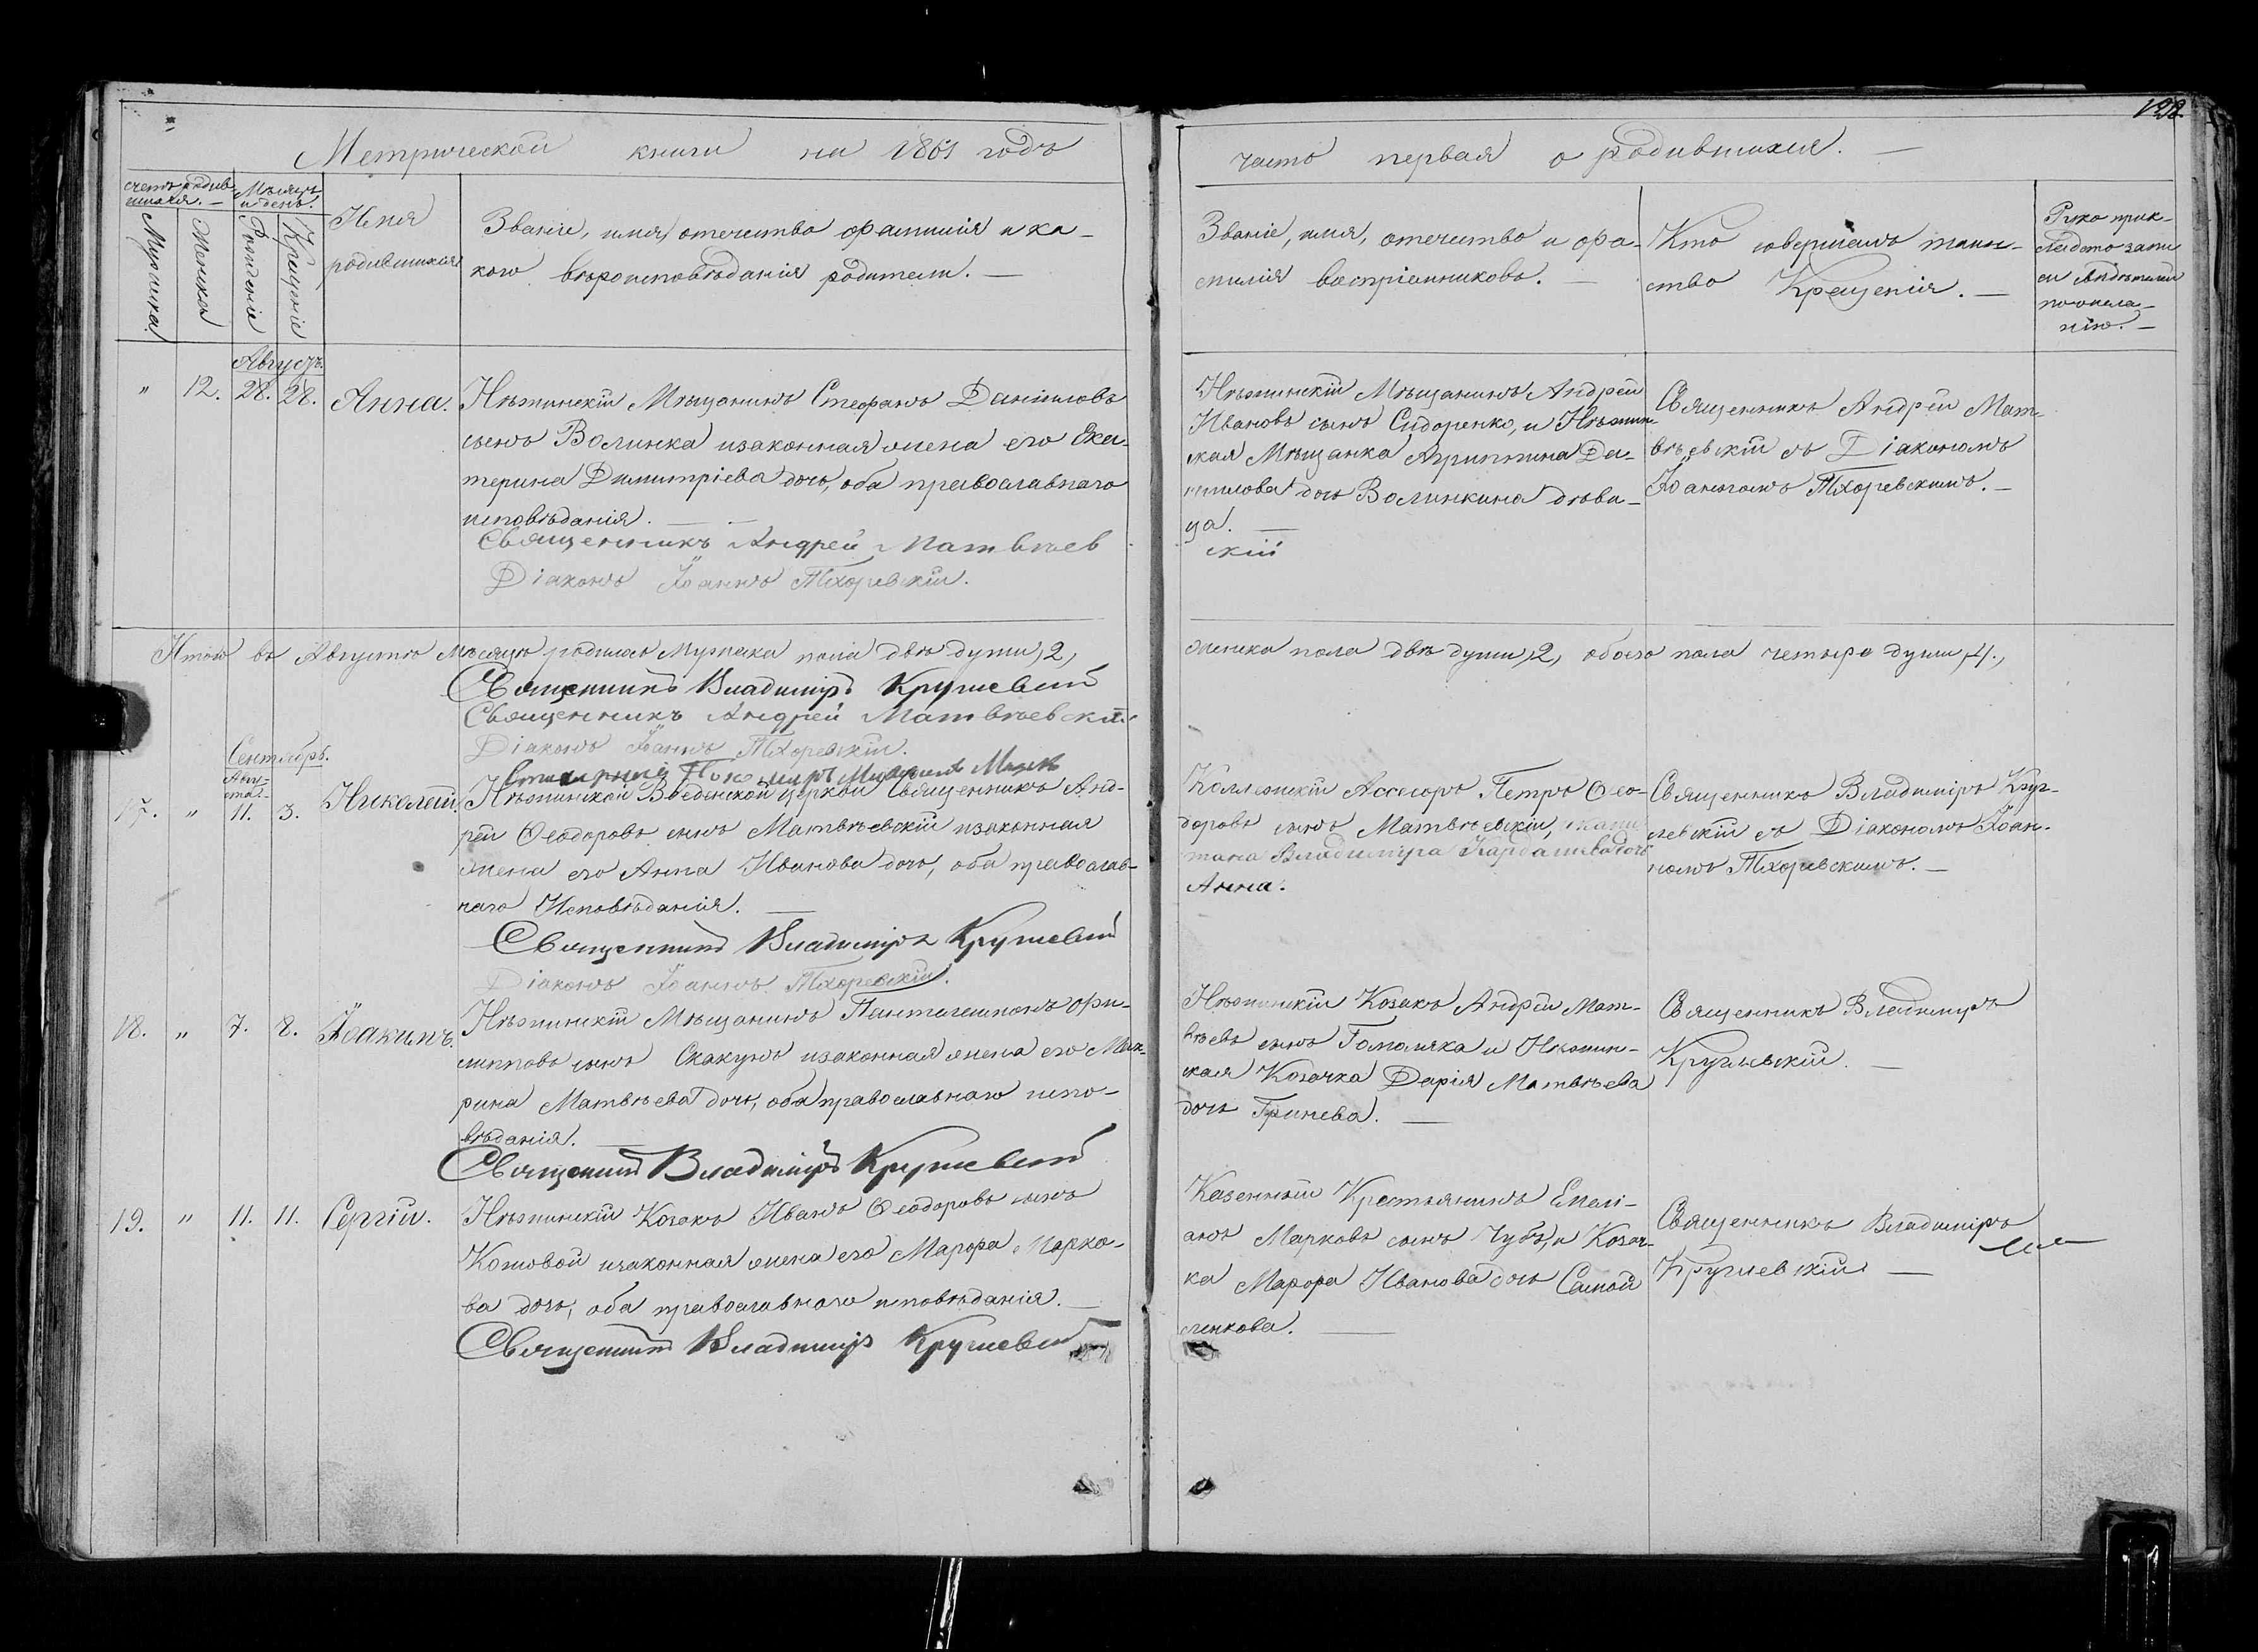 128.
Метрической книги на 1861 годъ
часть первая о родившихся. —
счетъ родив-
шихся. —
Мѣсяцъ
и день.
Мужеска.
Женска
Рожденіе
Крещеніе
Имя
родившихся
Званіе, имя, отечество фамилія и ка-
кого вѣроисповѣданія родители. —
Званіе, имя, отечество и фа-
милія воспріемниковъ. —
Кто совершалъ таин-
ство Крещенія. —
Руко прик-
ладство запи
си свидѣтелей
по жела-
нію. —
Августъ.
" 12. 28. 28. Анна.
Нѣжинскій Мѣщанинъ Стефанъ Даніиловъ
сынъ Волинка и законная жена его Ека-
терина Димитріева дочь, оба православнаго
исповѣданія. —
Священникъ Андрей Матвѣев
Діаконъ Іоаннъ Тхоревскій.
Нѣжинскій Мѣщанинъ Андрей
Ивановъ сынъ Сидоренко, и Нѣжин-
ская Мѣщанка Агриппина Да-
ніилова дочь Волинкина дѣви-
ца. —
скій
Священникъ Андрей Мат-
вѣевскій съ Діакономъ
Іоанномъ Тхоревскимъ. —
Итого въ Августѣ Мѣсяцѣ родилось Мужеска пола двѣ души, 2,
женска пола двѣ души, 2, обоего пола четыре души, 4.,
Священникъ Владиміръ Кружевский
Священникъ Андрей Матвѣевскій
Діаконъ Іоаннъ Тхоревскій.
Сентябрь.
Авгу-
ста
17. " 11. 3. Николай.
Нѣжинской Введенской церкви Священникъ Анд-
рей Ѳеодоровъ сынъ Матвѣевскій и законная
жена его Анна Иванова дочь, оба православ-
наго Исповѣданія. —
Священникъ Владиміръ Кружевский
Діаконъ Іоаннъ Тхоревскій.
Коллежскій Ассесоръ Петръ Ѳео-
доровъ сынъ Матвѣевскій, и капи
тана Владиміра Кардашева дочь
Анна.
Священникъ Владиміръ Круж-
левскій съ Діакономъ Іоан-
номъ Тхоревскимъ. —
18. " 7. 8. Іоакимъ.
Нѣжинскій Мѣщанинъ Пантелеимонъ Фи-
липповъ сынъ Скакунъ и законная жена его Мак-
рина Матвѣева дочь, оба православнаго испо-
вѣданія. —
Священникъ Владиміръ Кружевский
Нѣжинскій Козакъ Андрей Мат-
вѣевъ сынъ Гомоляка и Нѣжин-
ская Козачка Дарія Матвѣева
дочь Гринева. —
Священникъ Владиміръ
Кружевскій. —
19. " 11. 11. Сергій.
Нѣжинскій Козакъ Иванъ Ѳеодоровъ сынъ
Кошовой и законная жена его Марфа Марко-
ва дочь, оба православнаго исповѣданія. —
Священникъ Владиміръ Кружевский
Казенный Крестьянинъ Емелі-
анъ Марковъ сынъ Чубъ, и Козач-
ка Марфа Иванова дочь Самой
ленкова. —
Священникъ Владиміръ
Кружевскій —